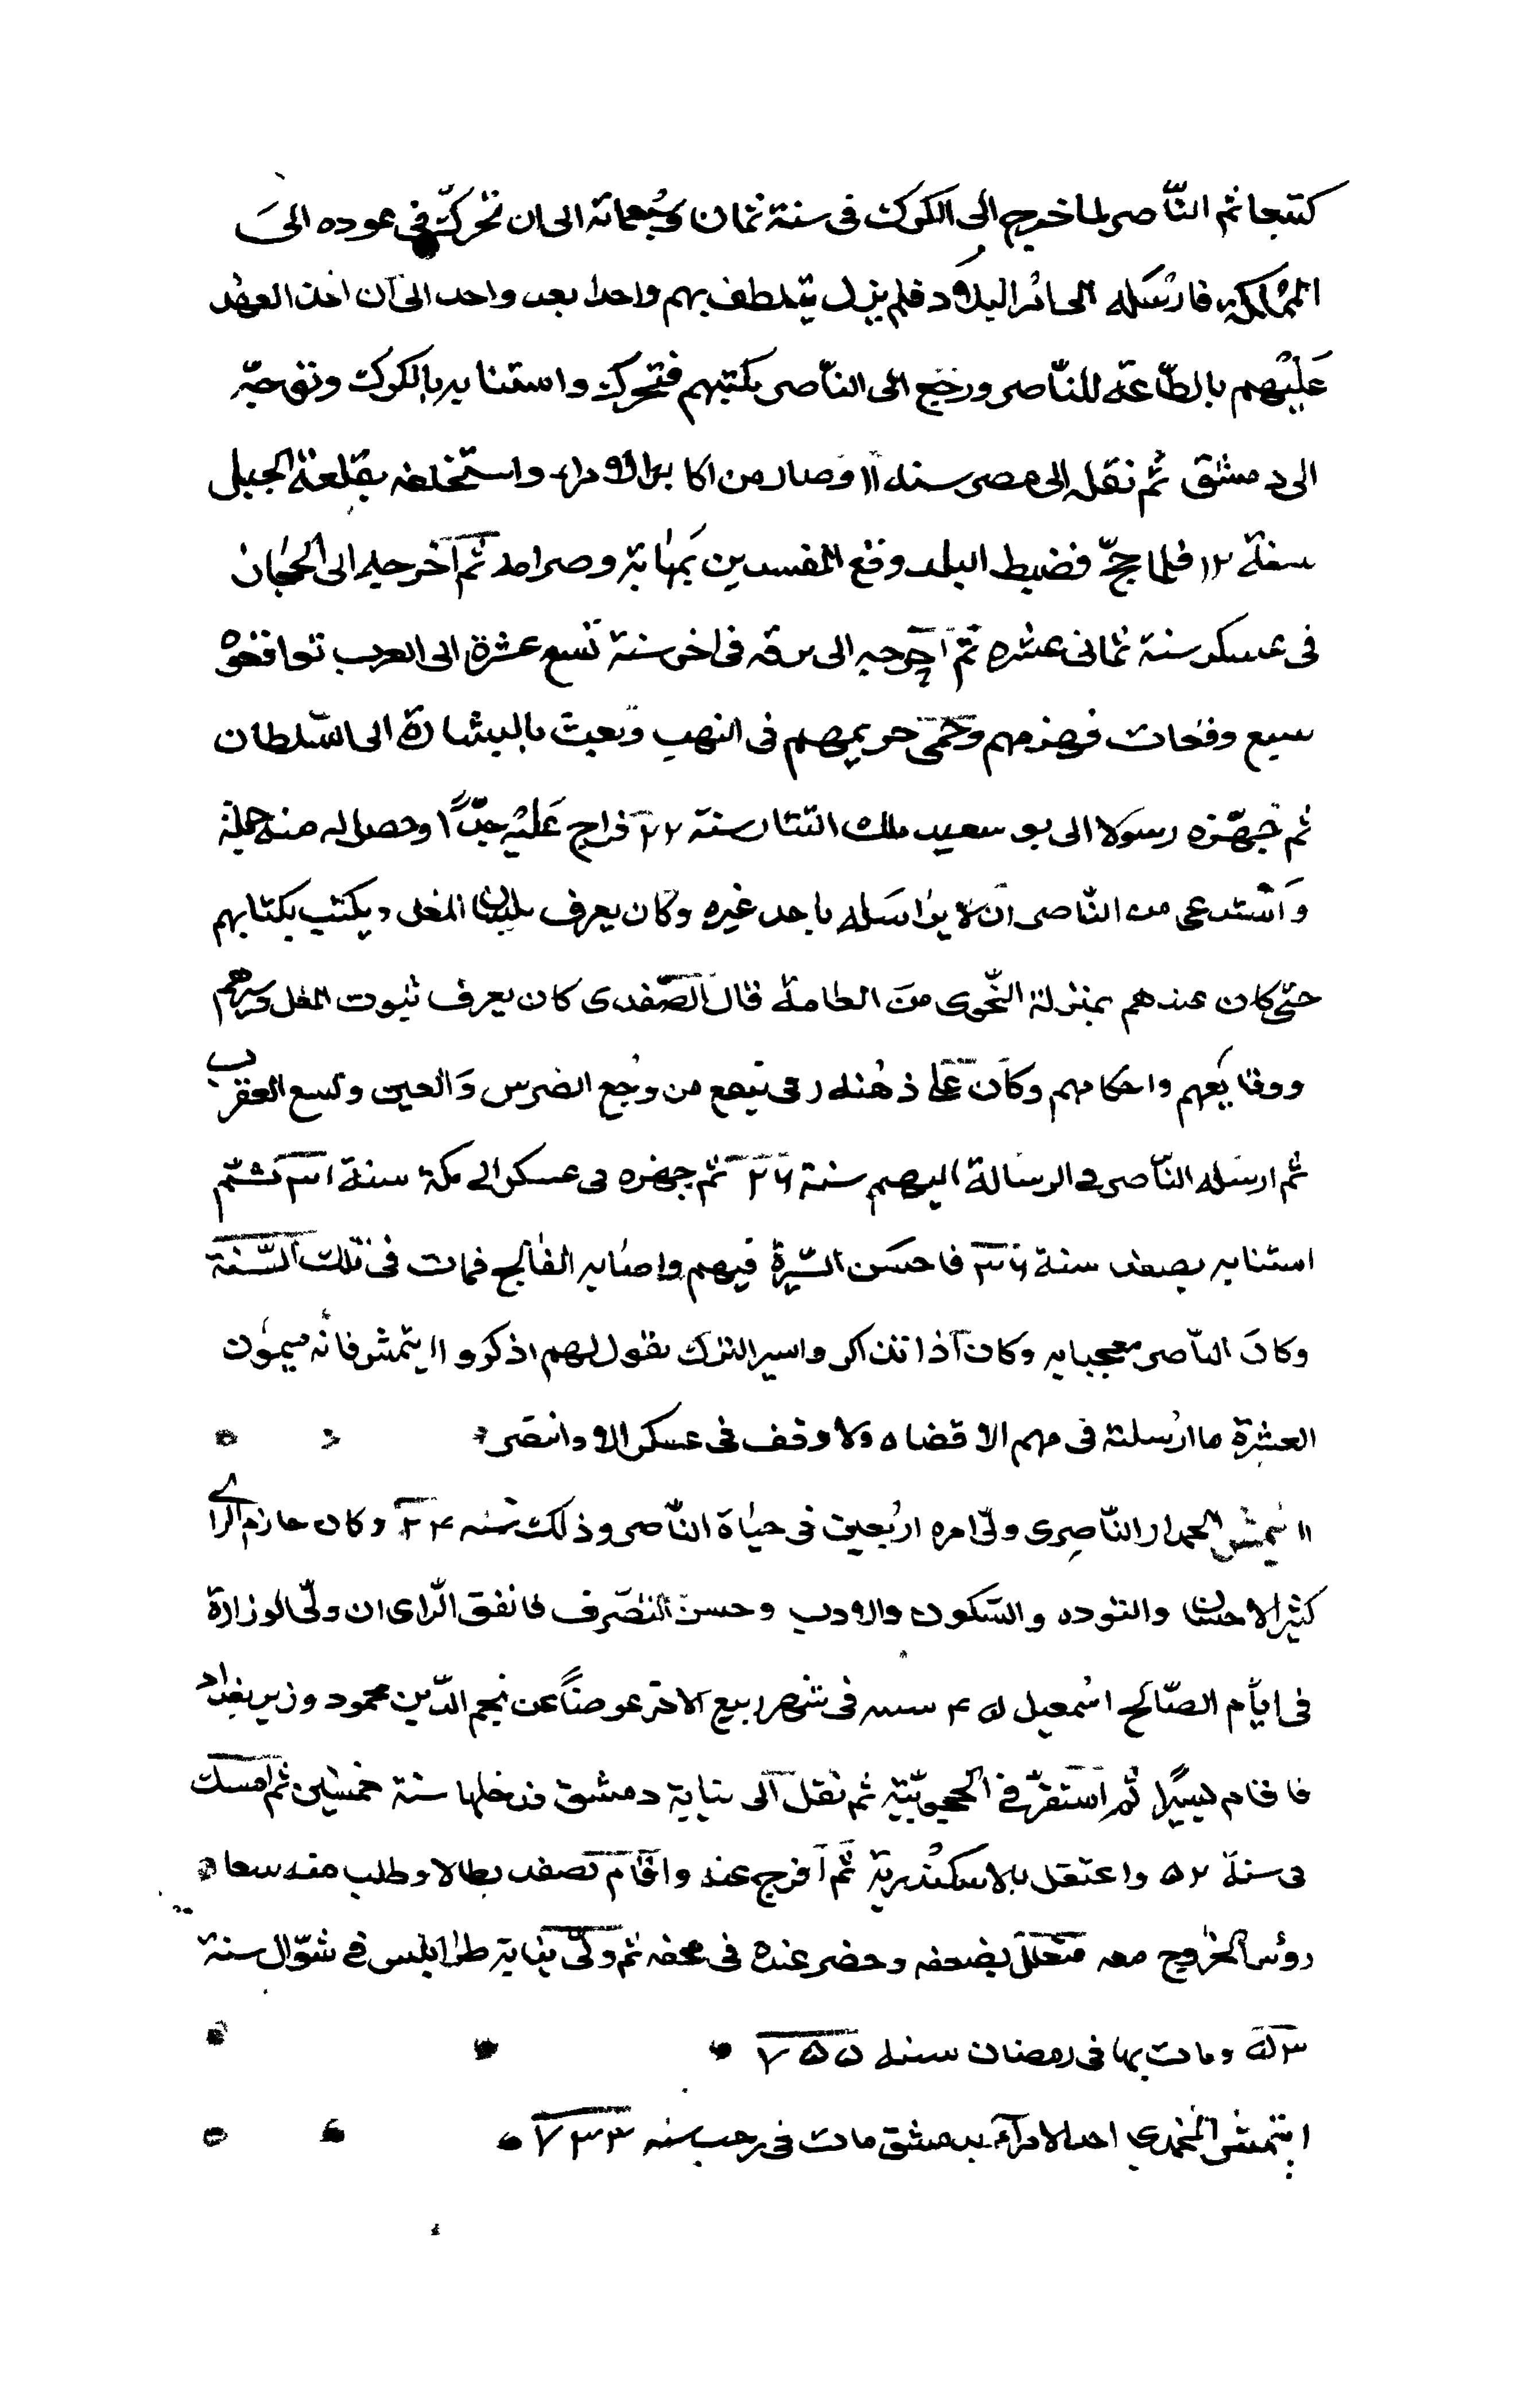 كتبغا ثم الناصر لما خرج الى الكرك فى سنة ثمان وسبعمائة الى ان تحرك فى عوده الى
المملكة فارسله الى امرا البلاد فلم يزل يتلطف بهم واحدا بعد واحد الى ان اخذ العهد
عليهم بالطاعة للناصر ورجع الى الناصر بكتبهم فتحرك واستنابه بالكرك وتوجه
الى دمشق ثم نقله الى مصر سنة ١١ وصار من اكابر الامراء واستخلفه بقلعة الجبل
سنة ١٢ فلما حجّ فضبط البلد وقمع المفسدين بمهابة وصرامة ثم اخرجه الى الحجاز
فى عسكر سنة ثمانى عشره ثم اخرجه الى برقه فى اخر سنة تسع عشرة الى العرب
سبع وقعات فهزمهم وحمى حريمهم فى النهب وبعث بالبشارة الى السّلطان
ثم جهّزه رسولا الى بو سعيد ملك التتار سنة ٢٢ فراج عليه جدّا وحصل له منه جملة
واستدعى من الناصر ان لا يراسله باحد غيره وكان يعرف بلسان المغل ويكتب بكتابهم
حتى كان عندهم بمنزلة من قال الصّفدى كان يعرف بيوت المغل
ووقايعهم واحكامهم وكان على ذهنه رقى تنفع من وجع الضرس والعين ولسع العقرب
ثم ارسله الناصر فى الرسالة اليهم سنة ٢٦ ثم جهزه فى عسكر الى مكة سنة ٣١ ثم
استنابه بصفد سنة ٣٦ فاحسن السّيرة فيهم واصابه الفالج فمات فى تلك السّنة
وكان الناصر معجبا به وكان اذا تذاكروا سير الترك يقول لهم اذكروا ايتمش فانه ميمون
العشرة ما ارسلته فى مهم الا قضاه ولا وقف فى عسكر الا وانتصر
ايتمش الجمدار الناصرى ولّى امره اربعين فى حياة الناصر وذلك سنه ٢٤ وكان حازم الراى
كثير الاحسان والتوده والسّكون والادب وحسن التصّرف فاتفق الّراى ان ولّى الوزارة
فى ايّام الصّالح اسمعيل سنه فى شهر ربيع الاخر عوضاً عن نجم الدّين محمود وزير بغداد
فاقام يسيرًا ثم استقرّ فى الحجوبيّة ثم نقل الى نيابة دمشق فدخلها سنة خمسين ثم امسك
فى سنة ٥٢ واعتقل بالاسكندرية ثم افرج عنه واقام بصفد بطالا وطلب منه
روس الخروج معه فتعلل بضعفه وحضر عنده فى محفه ثم ولّى نيابة طرابلس فى شوّال سنة
٥٣ ومات بها فى رمضان سنه ٧٥٥
ايتمش المحمدى احد الامرآء بدمشق مات فى رجب سنه ٧٣٣